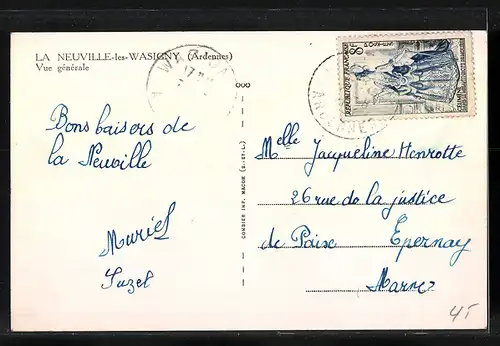 LA NEUVILLE-les-WASIGNY (Ardennes)
Vue générale
8F
REPUBLIQUE FRANÇAISE
POSTES
ARDENNES
Bons baisers de
la Neuville
Muriel
Suzel
COMBIER IMP. MACON (S.-ET-L.)
Melle Jacqueline Henrotte
26 rue de la justice
de Paix Epernay
Marne
45